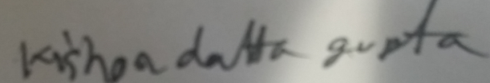 Kishor datta gupta